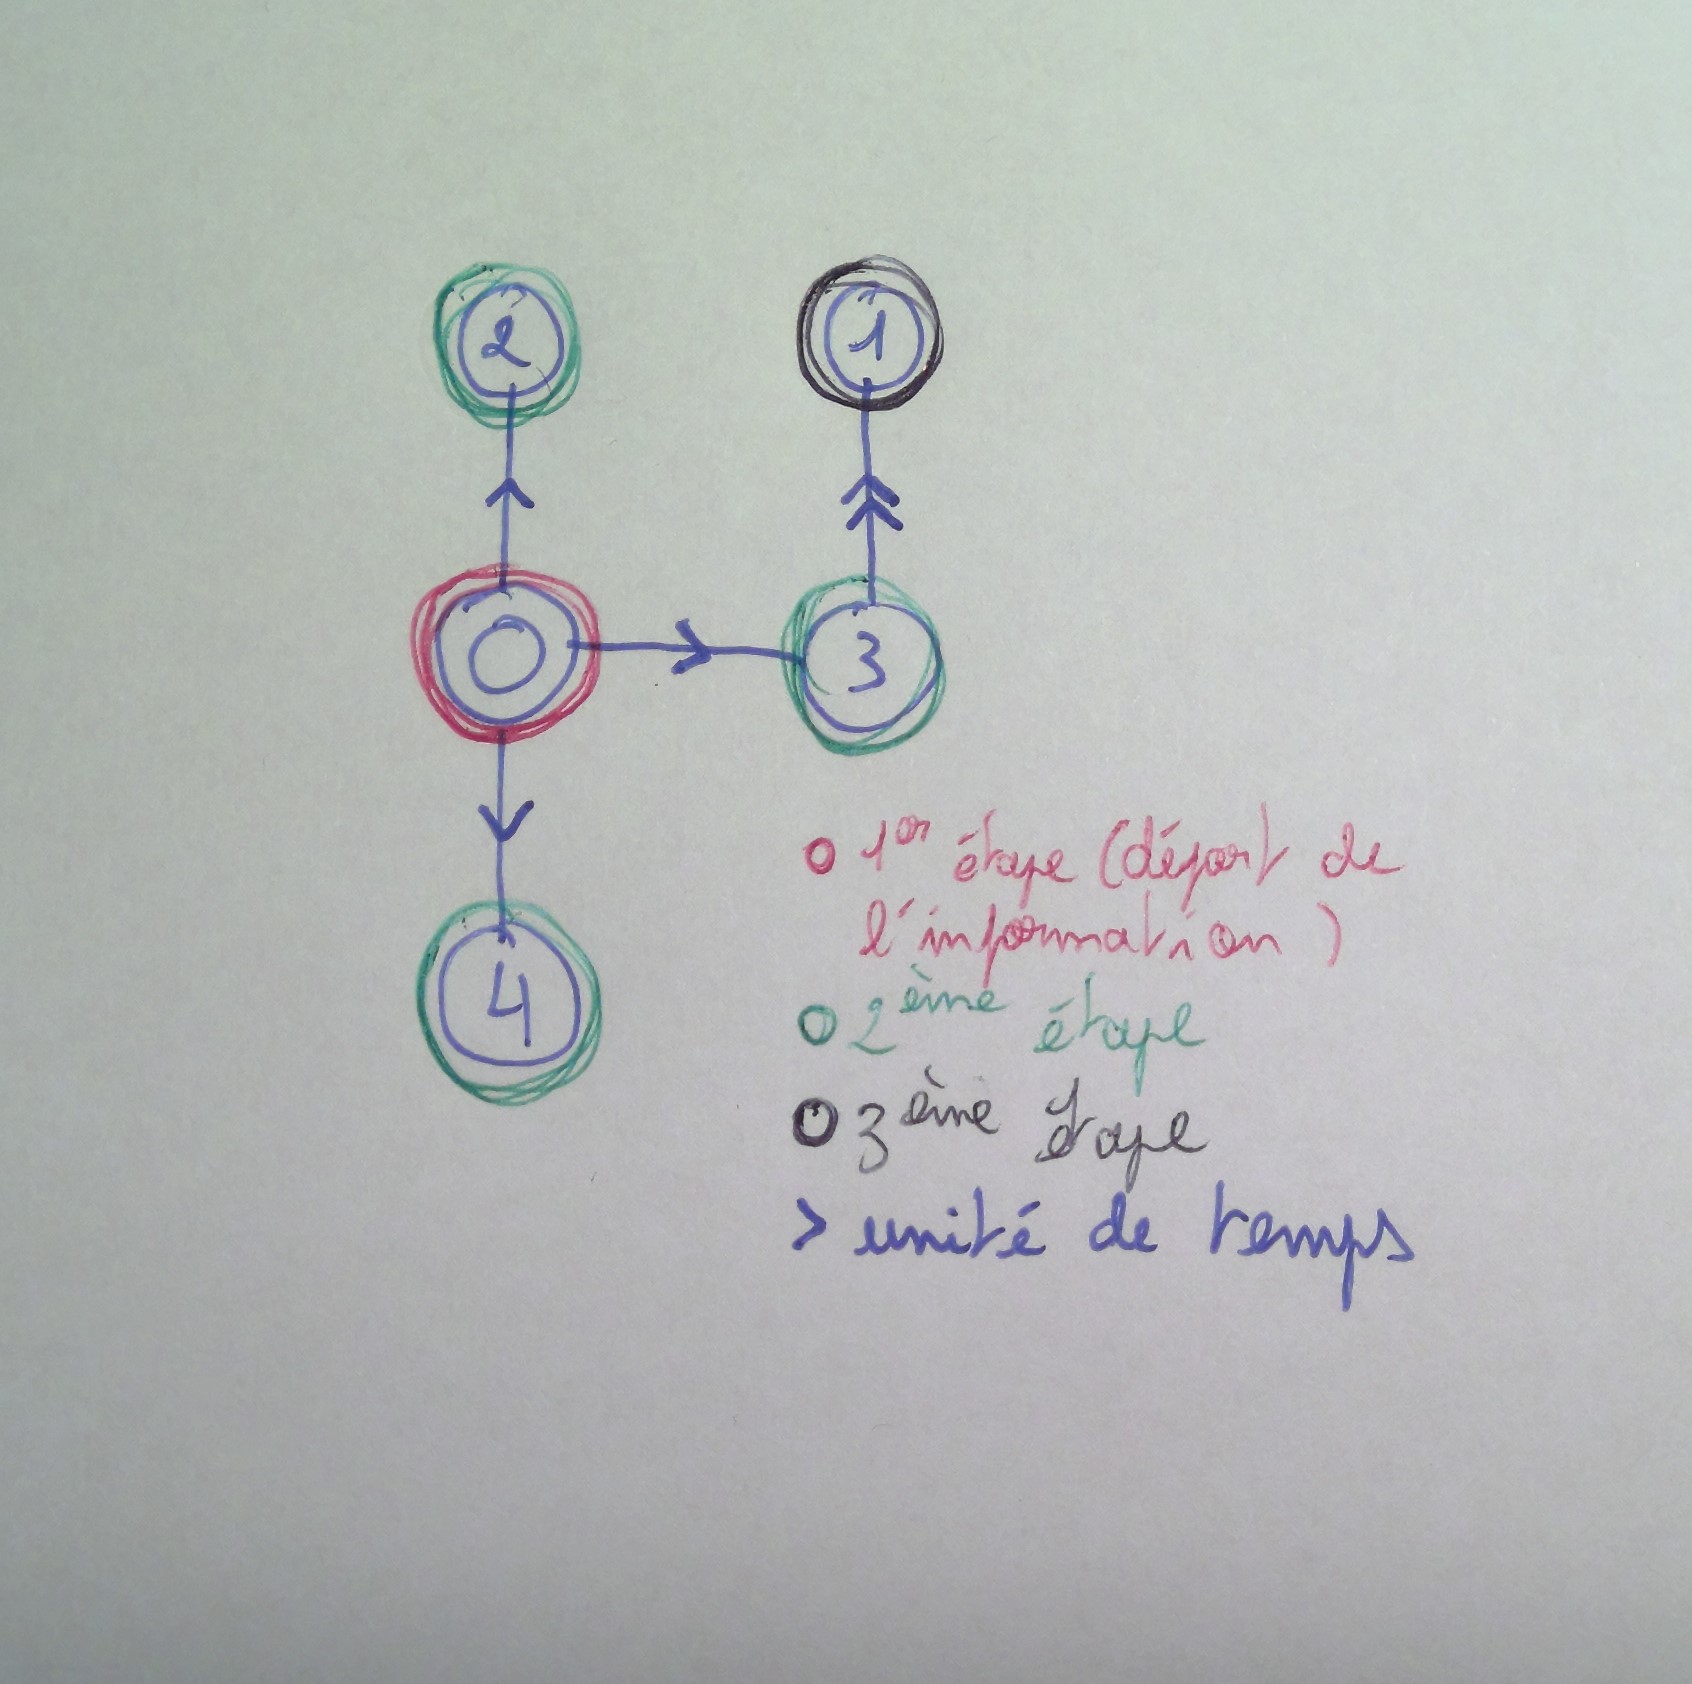 2 1
0 3
4
1er étape (départ de
l'information)
2ème étape
3ème étape
> unité de temps